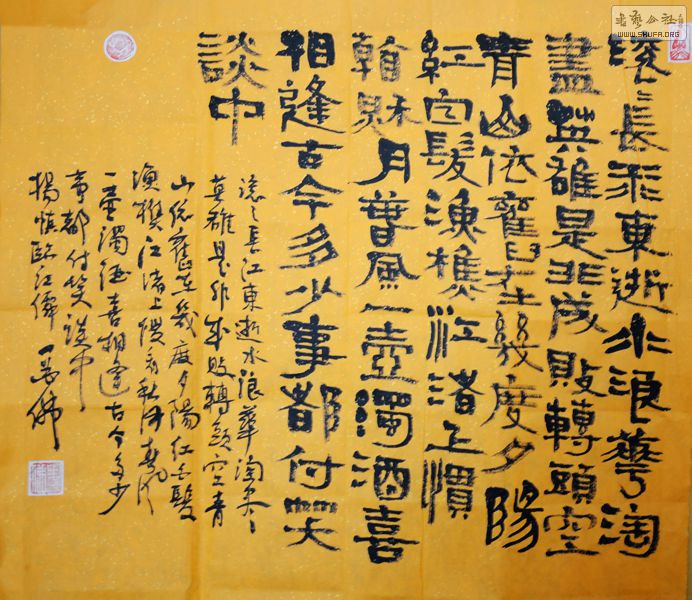 滚〻長江東逝水浪華淘
盡英雄是非成敗轉頭空
青山依舊在幾度夕陽
紅白髮漁樵江渚上慣
看秋月春風一壺濁酒喜
相逢古今多少事都付笑
談中
滚〻長江東逝水浪華淘盡
英雄是非成敗轉頭空青
山依舊在幾度夕陽紅白髮
漁樵江渚上慣看秋月春風
一壺濁酒喜相逢古今多少
事都付笑談中
楊慎臨江僊
書藝公社
WWW.SHUFA.ORG